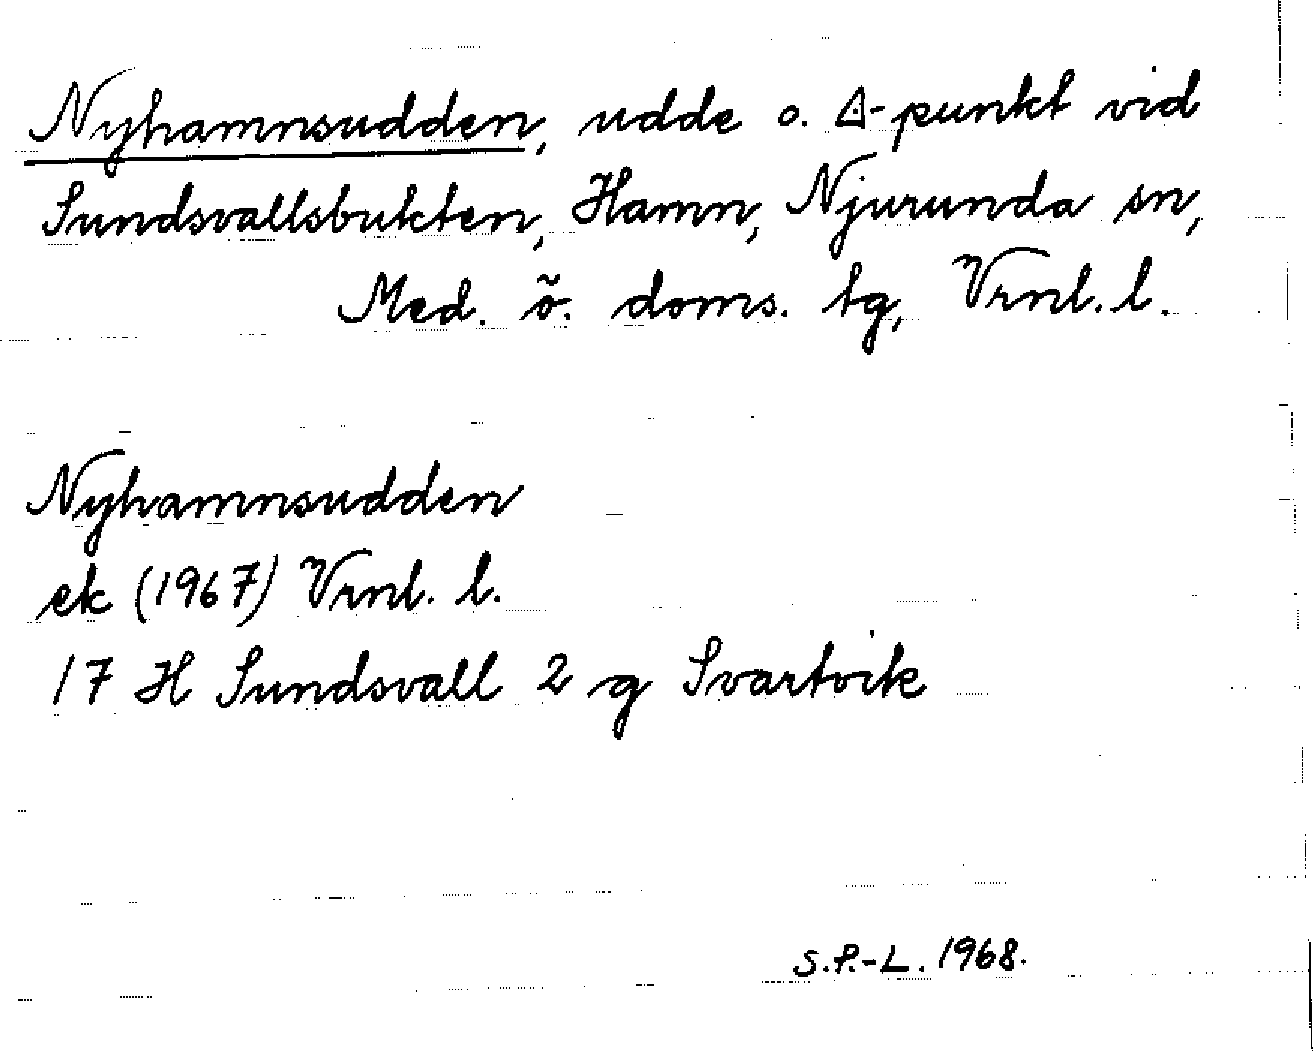 Nyhamnsudden, udde o. △-punkt vid
Sundsvallsbukten, Hamn, Njurunda sn,
Med. ö. doms. tg, Vrnl. l.
Nyhamnsudden
ek (1967) Vrnl. l.
17 H Sundsvall 2 g Svartvik
S.P.-L. 1968.